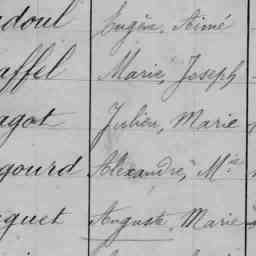 doul Eugène, Aimé
affel Marie, Joseph
agot Julien, Marie
gourd Alexandre, Mie
quet Auguste, Marie